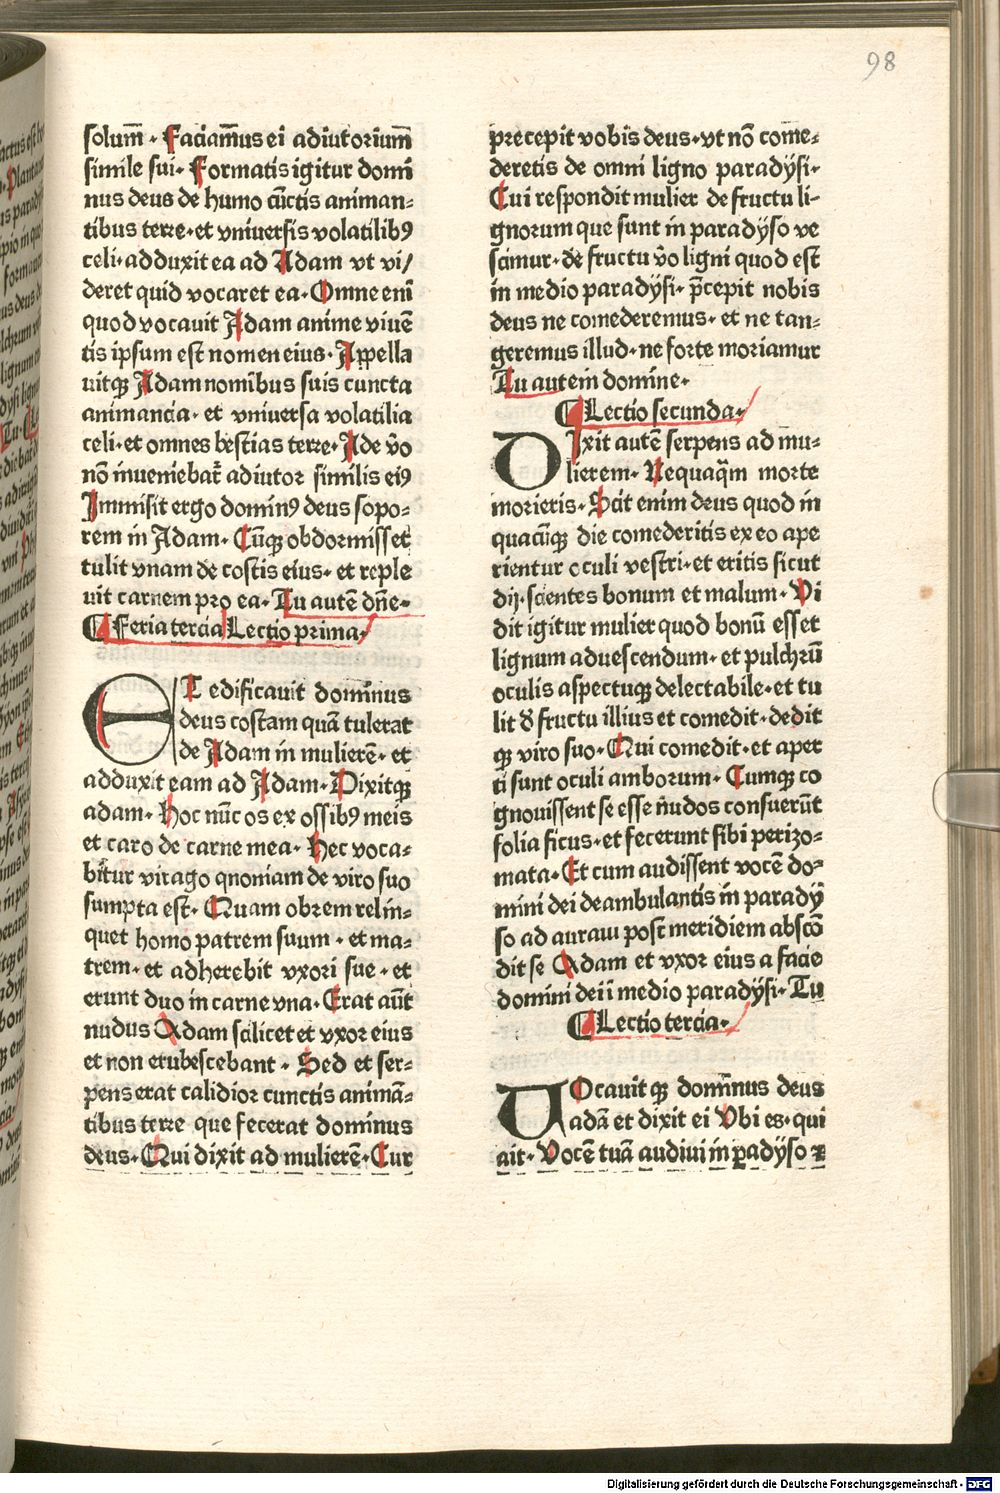 98
solum̄ · Faciam̄us ei adiutorium̄
simile sui · Formatis igitur domi
nus deus de humo cūctis animan⸗
tibus terre · et vniuersis volatilibꝰ
celi · adduxit ea ad Adam vt vi/
deret quid vocaret ea · Omne eni
quod vocauit Adam anime viuē
tis ipsum est nomen eius · Appella
uitqꝫ Adam nomībus suis cuncta
animancia · et vniuersa volatilia
celi · et omnes bestias terre · Ade v̄o
nō inueniebat̄ adiutor similis eiꝰ
Immisit ergo dominꝰ deus sopo⸗
rem in Adam · Cūqꝫ obdormisset
tulit vnam de costis eius · et reple
uit carnem pro ea · Tu autē dn̄e ·
Feria tercia Lectio prima ·
ET edificauit domīnus
deus costam quā tulerat
de Adam in mulierē · et
adduxit eam ad Adam · Dixitqꝫ
adam · Hoc nūc os ex ossibꝰ meis
et caro de carne mea · Hec voca⸗
bītur virago qnoniam de viro suo
sumpta est · Quam obrem relin⸗
quet homo patrem suum · et ma⸗
trem · et adherebit vxori sue · et
erunt duo in carne vna · Erat aūt
nudus Adam scilicet et vxor eius
et non erubescebant · Sed et ser⸗
pens erat calidior cunctis animā⸗
tibus terre que fecerat dominus
deus · Qui dixit ad mulierē · Cur
precepit vobis deus · vt nō come⸗
deretis de omni ligno paradÿsi ·
Cui respondit mulier de fructu li⸗
gnorum que sunt in paradÿso ve
scimur · de fructu v̄o ligni quod est
in medio paradÿsi · p̄cepit nobis
deus ne comederemus · et ne tan⸗
geremus illud · ne forte moriamur
Tu autem domine ·
Lectio secunda ·
DIxit autē serpens ad mu⸗
lierem · Nequaq̄m morte
morieris · Scit enim deus quod in
quacūqꝫ die comederitis ex eo ape
rientur oculi vestri · et eritis sicut
dij · scientes bonum et malum · Vi
dit igitur mulier quod bonū esset
lignum aduescendum · et pulchrū
oculis aspectuqꝫ delectabile · et tu
lit d̄ fructu illius et comedit · dedit
qꝫ viro suo · Qui comedit · et aper
ti sunt oculi amborum · Cumqꝫ co
gnouissent se esse n̄udos consuerūt
folia ficus · et fecerunt sibi perizo⸗
mata · Et cum audissent vocē do⸗
mini dei deambulantis in paradÿ
so ad auraui post meridiem abscō
dit se Adam et vxor eius a facie
domini dei ī medio paradÿsi · Tu
Lectio tercia ·
VOcauit qꝫ domīnus deus
adā et dixit ei Vbi es · qui
ait · Vocē tuā audiui in ꝑadÿso ⁊
Digitalisierung gefördert durch die Deutsche Forschungsgemeinschaft · DFG